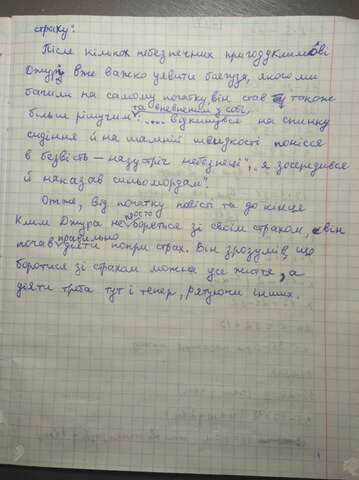 страху:
Після кількох небезпечних пригод Климові
Джурі вже важко уявити боягуза, якого ми
бачили на самому початку, він став також
більш рішучим та впевненим у собі: „... відкинувся на спинку
сидіння й на шаленій швидкості понісся
в безвість – назустріч небезпеці", „я зосередився
й наказав синьомордам".
Отже, від початку повісті та до кінця
Клим Джура не просто бореться зі своїм страхом, а він
почав правильно діяти попри страх. Він зрозумів, що
боротися зі страхом можна усе життя, а
діяти треба тут і тепер, рятуючи інших.